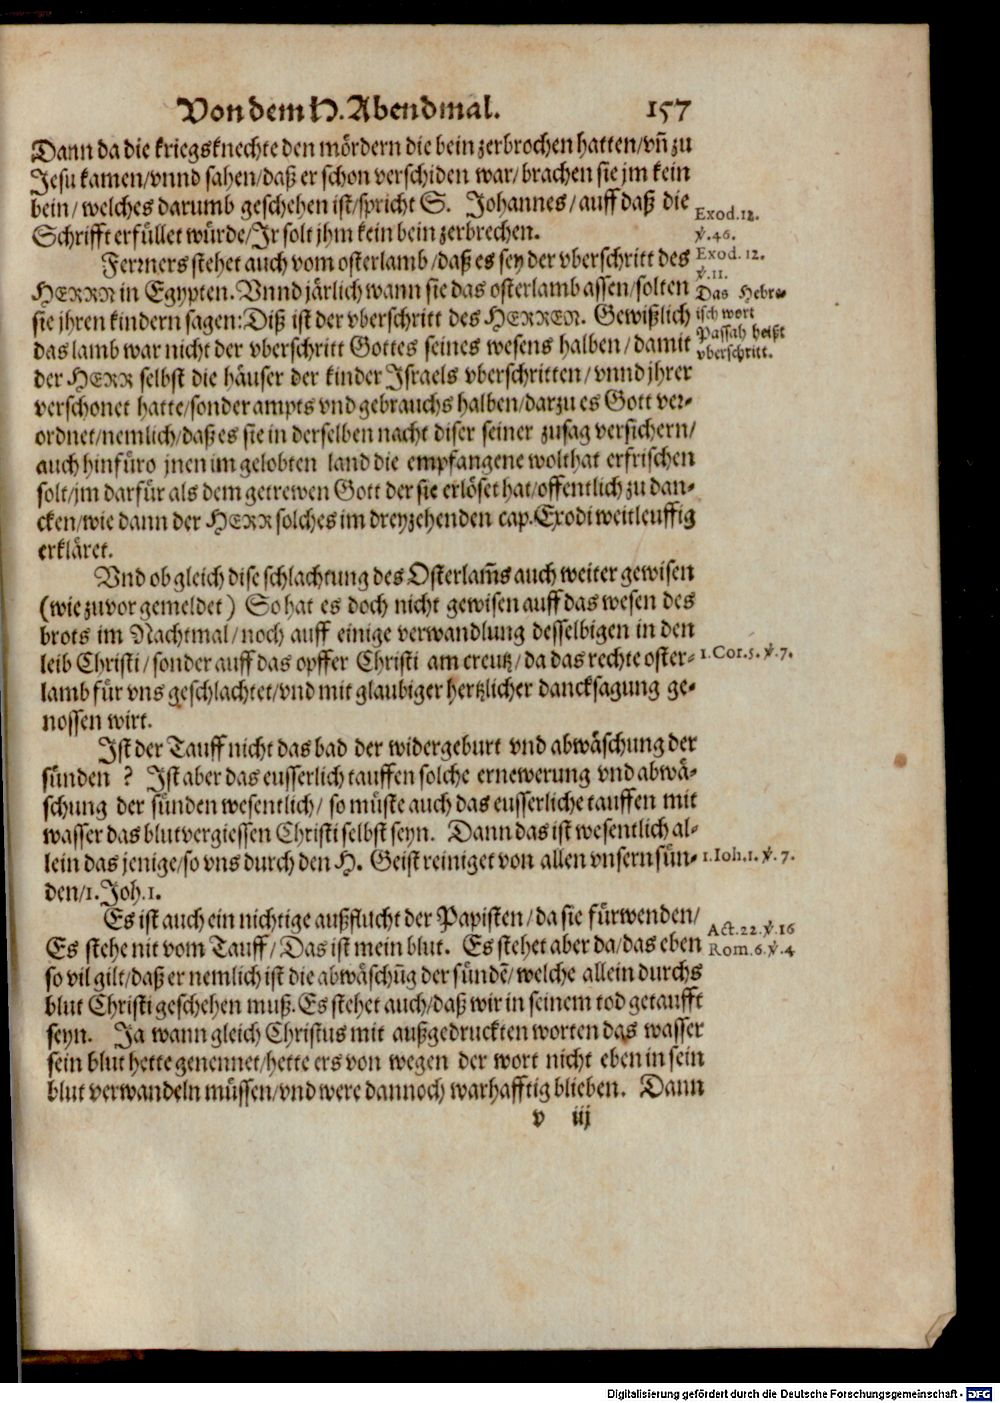 Von dem H. Abendmal. 157
Dann da die kriegsknechte den mördern die bein zerbrochen hatten/vn̄ zu
Jesu kamen/vnnd sahen/daß er schon verschiden war/brachen sie jm kein
bein/welches darumb geschehen ist/spricht S. Johannes/auff daß die
Schrifft erfüllet würde/Jr solt jhm kein bein zerbrechen.
Exod.12.
℣.46.
Ferrners stehet auch vom osterlamb/daß es sey der vberschritt des
HERRN in Egypten. Vnnd järlich wann sie das osterlamb assen/solten
sie jhren kindern sagen: Diß ist der vberschritt des HERREN. Gewißlich
das lamb war nicht der vberschritt Gottes seines wesens halben/damit
der HERR selbst die häuser der kinder Israels vberschritten/vnnd jhrer
verschonet hatte/sonder ampts vnd gebrauchs halben/darzu es Gott ver-
ordnet/nemlich/daß es sie in derselben nacht diser seiner zusag versichern/
auch hinfüro jnen im gelobten land die empfangene wolthat erfrischen
solt/jm darfür als dem getrewen Gott der sie erlöset hat/offentlich zu dan-
cken/wie dann der HERR solches im dreyzehenden cap. Exodi weitleuffig
erkläret.
Exod. 12.
℣.11.
Das Hebre-
isch wort
Passah heißt
vberschritt.
Vnd ob gleich dise schlachtung des Osterlam̄s auch weiter gewisen
(wie zuvor gemeldet) So hat es doch nicht gewisen auff das wesen des
brots im Nachtmal/noch auff einige verwandlung desselbigen in den
leib Christi/sonder auff das opffer Christi am creutz/da das rechte oster-
lamb für vns geschlachtet/vnd mit glaubiger hertzlicher dancksagung ge-
nossen wirt.
1.Cor.5.℣.7.
Ist der Tauff nicht das bad der widergeburt vnd abwäschung der
sünden? Ist aber das eusserlich tauffen solche ernewerung vnd abwä-
schung der sünden wesentlich/so müste auch das eusserliche tauffen mit
wasser das blutvergiessen Christi selbst seyn. Dann das ist wesentlich al-
lein das jenige/so vns durch den H. Geist reiniget von allen vnsern sün-
den/1. Joh.1.
1.Ioh.1.℣.7.
Es ist auch ein nichtige außflucht der Papisten/da sie fürwenden/
Es stehe nit vom Tauff/Das ist mein blut. Es stehet aber da/das eben
so vil gilt/daß er nemlich ist die abwäschūg der sündē/welche allein durchs
blut Christi geschehen muß. Es stehet auch/daß wir in seinem tod getaufft
seyn. Ja wann gleich Christus mit außgedruckten worten das wasser
sein blut hette genennet/hette ers von wegen der wort nicht eben in sein
blut verwandeln müssen/vnd were dannoch warhafftig blieben. Dann
Act.22.℣.16
Rom.6.℣.4
v iij
Digitalisierung gefördert durch die Deutsche Forschungsgemeinschaft - DFG